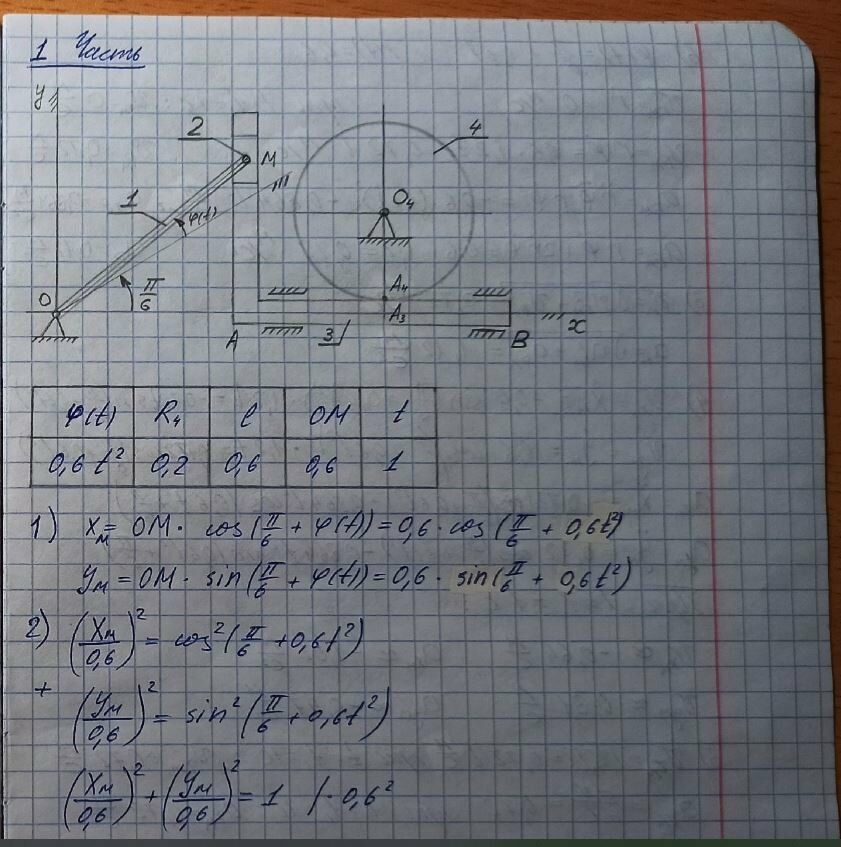 1 Часть
y
2
M
4
1
φ(t)
O₄
π/6
O
A₄
A₃
x
A
3
B
φ(t) R₄ ℓ OM t
0,6t² 0,2 0,6 0,6 1
1) Xм = OM · cos(π/6 + φ(t)) = 0,6 · cos(π/6 + 0,6t²)
Yм = OM · sin(π/6 + φ(t)) = 0,6 · sin(π/6 + 0,6t²)
2) (Xм/0,6)² = cos²(π/6 + 0,6t²)
+
(Yм/0,6)² = sin²(π/6 + 0,6t²)
(Xм/0,6)² + (Yм/0,6)² = 1 /· 0,6²